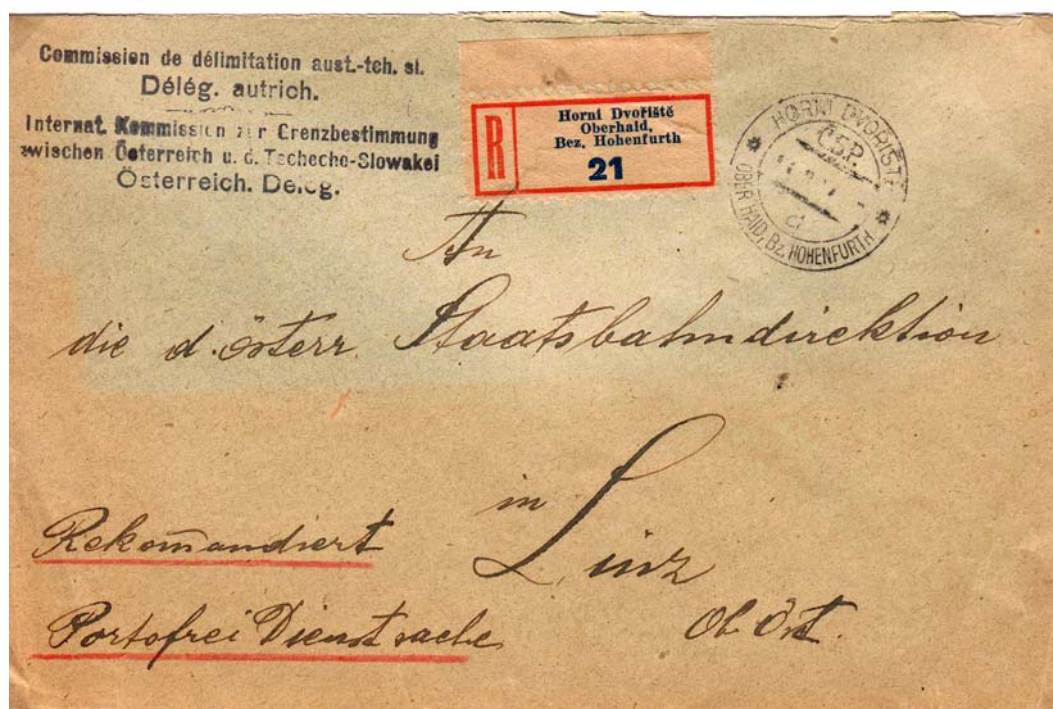 Commission de délimitation aust.-tch. sl.
Délég. autrich.
Internat. Kommission zur Grenzbestimmung
zwischen Österreich u. d. Tschecho-Slowakei
Österreich. Deleg.
R
Horni Dvořiště
Oberhaid,
Bez. Hohenfurth
21
HORNI DVOŘIŠTĚ
Č.S.P.
OBER HAID, Bz. HOHENFURTH
An
die d. österr. Staatsbahndirektion
in
Linz
Ob. Öst.
Rekomandiert
Portofrei Dienstsache